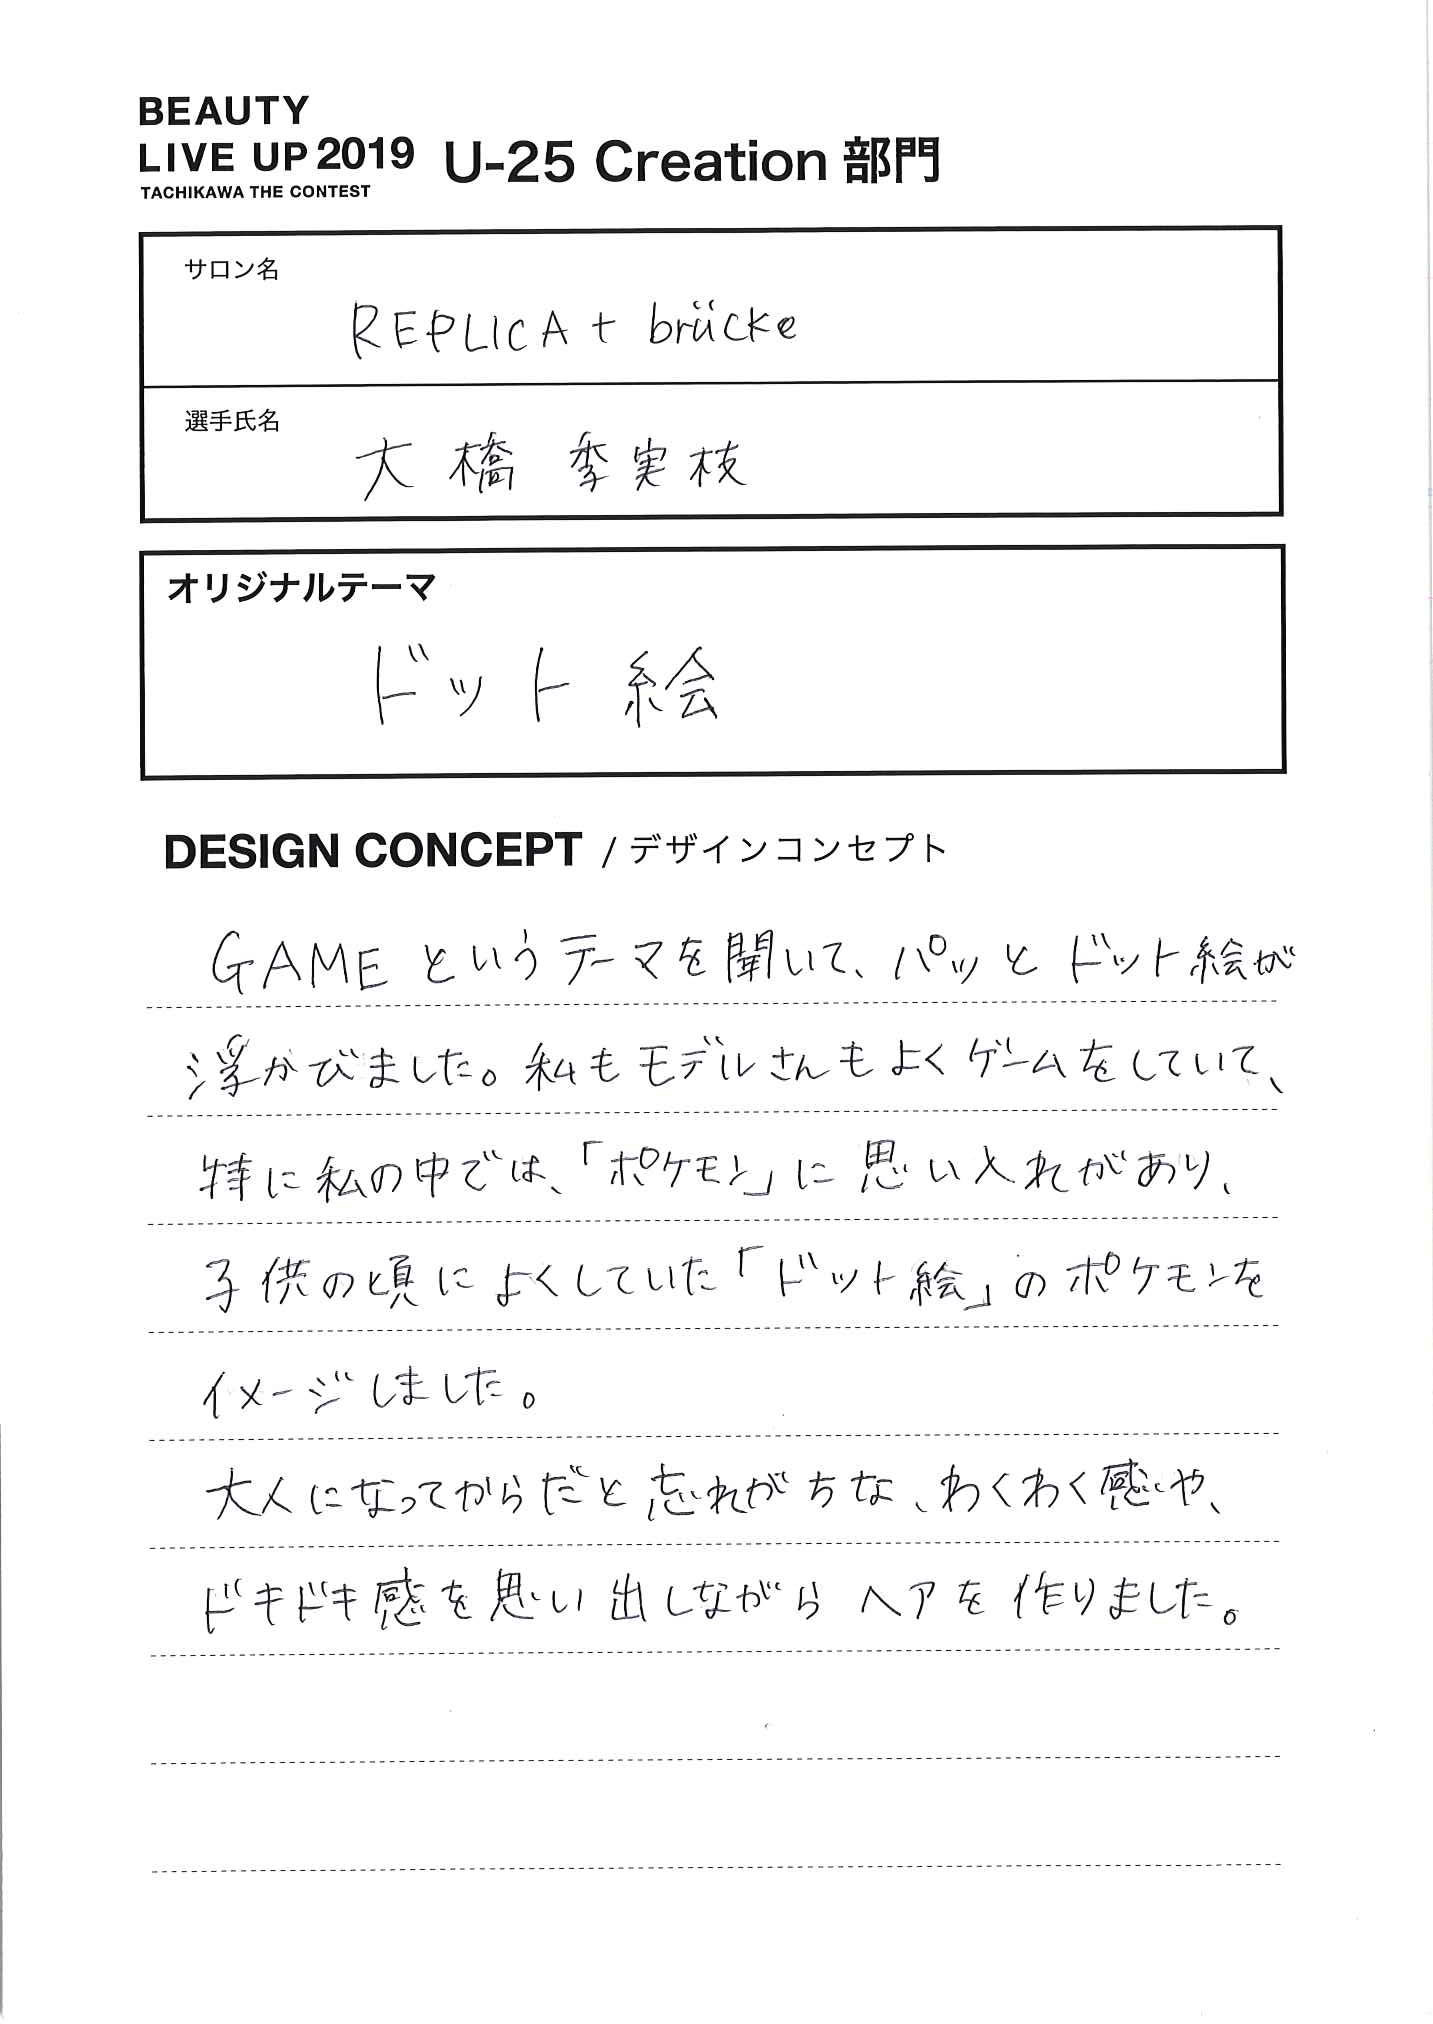 BEAUTY
LIVE UP 2019 U-25 Creation 部門
TACHIKAWA THE CONTEST
サロン名
REPLICA+ brücke
選手氏名
大橋 季実枝
オリジナルテーマ
ドット絵
DESIGN CONCEPT / デザインコンセプト
GAMEというテーマを聞いて、パッとドット絵が
浮かびました。私もモデルさんもよくゲームをしていて、
特に私の中では、「ポケモン」に思い入れがあり、
子供の頃によくしていた「ドット絵」のポケモンを
イメージしました。
大人になってからだと忘れがちな、わくわく感や、
ドキドキ感を思い出しながらヘアを作りました。